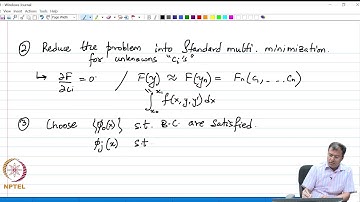 Windows Journal
② Reduce the problem into Standard multi. minimization.
for unknowns "ci's"
↳ ∂F/∂ci = 0 / F(y) ≈ F(yn) = Fn(c1, ... cn)
∫ f(x, y, y') dx
③ Choose {φo(x)} s.t. B.C. are satisfied.
φj(x) s.t
NPTEL